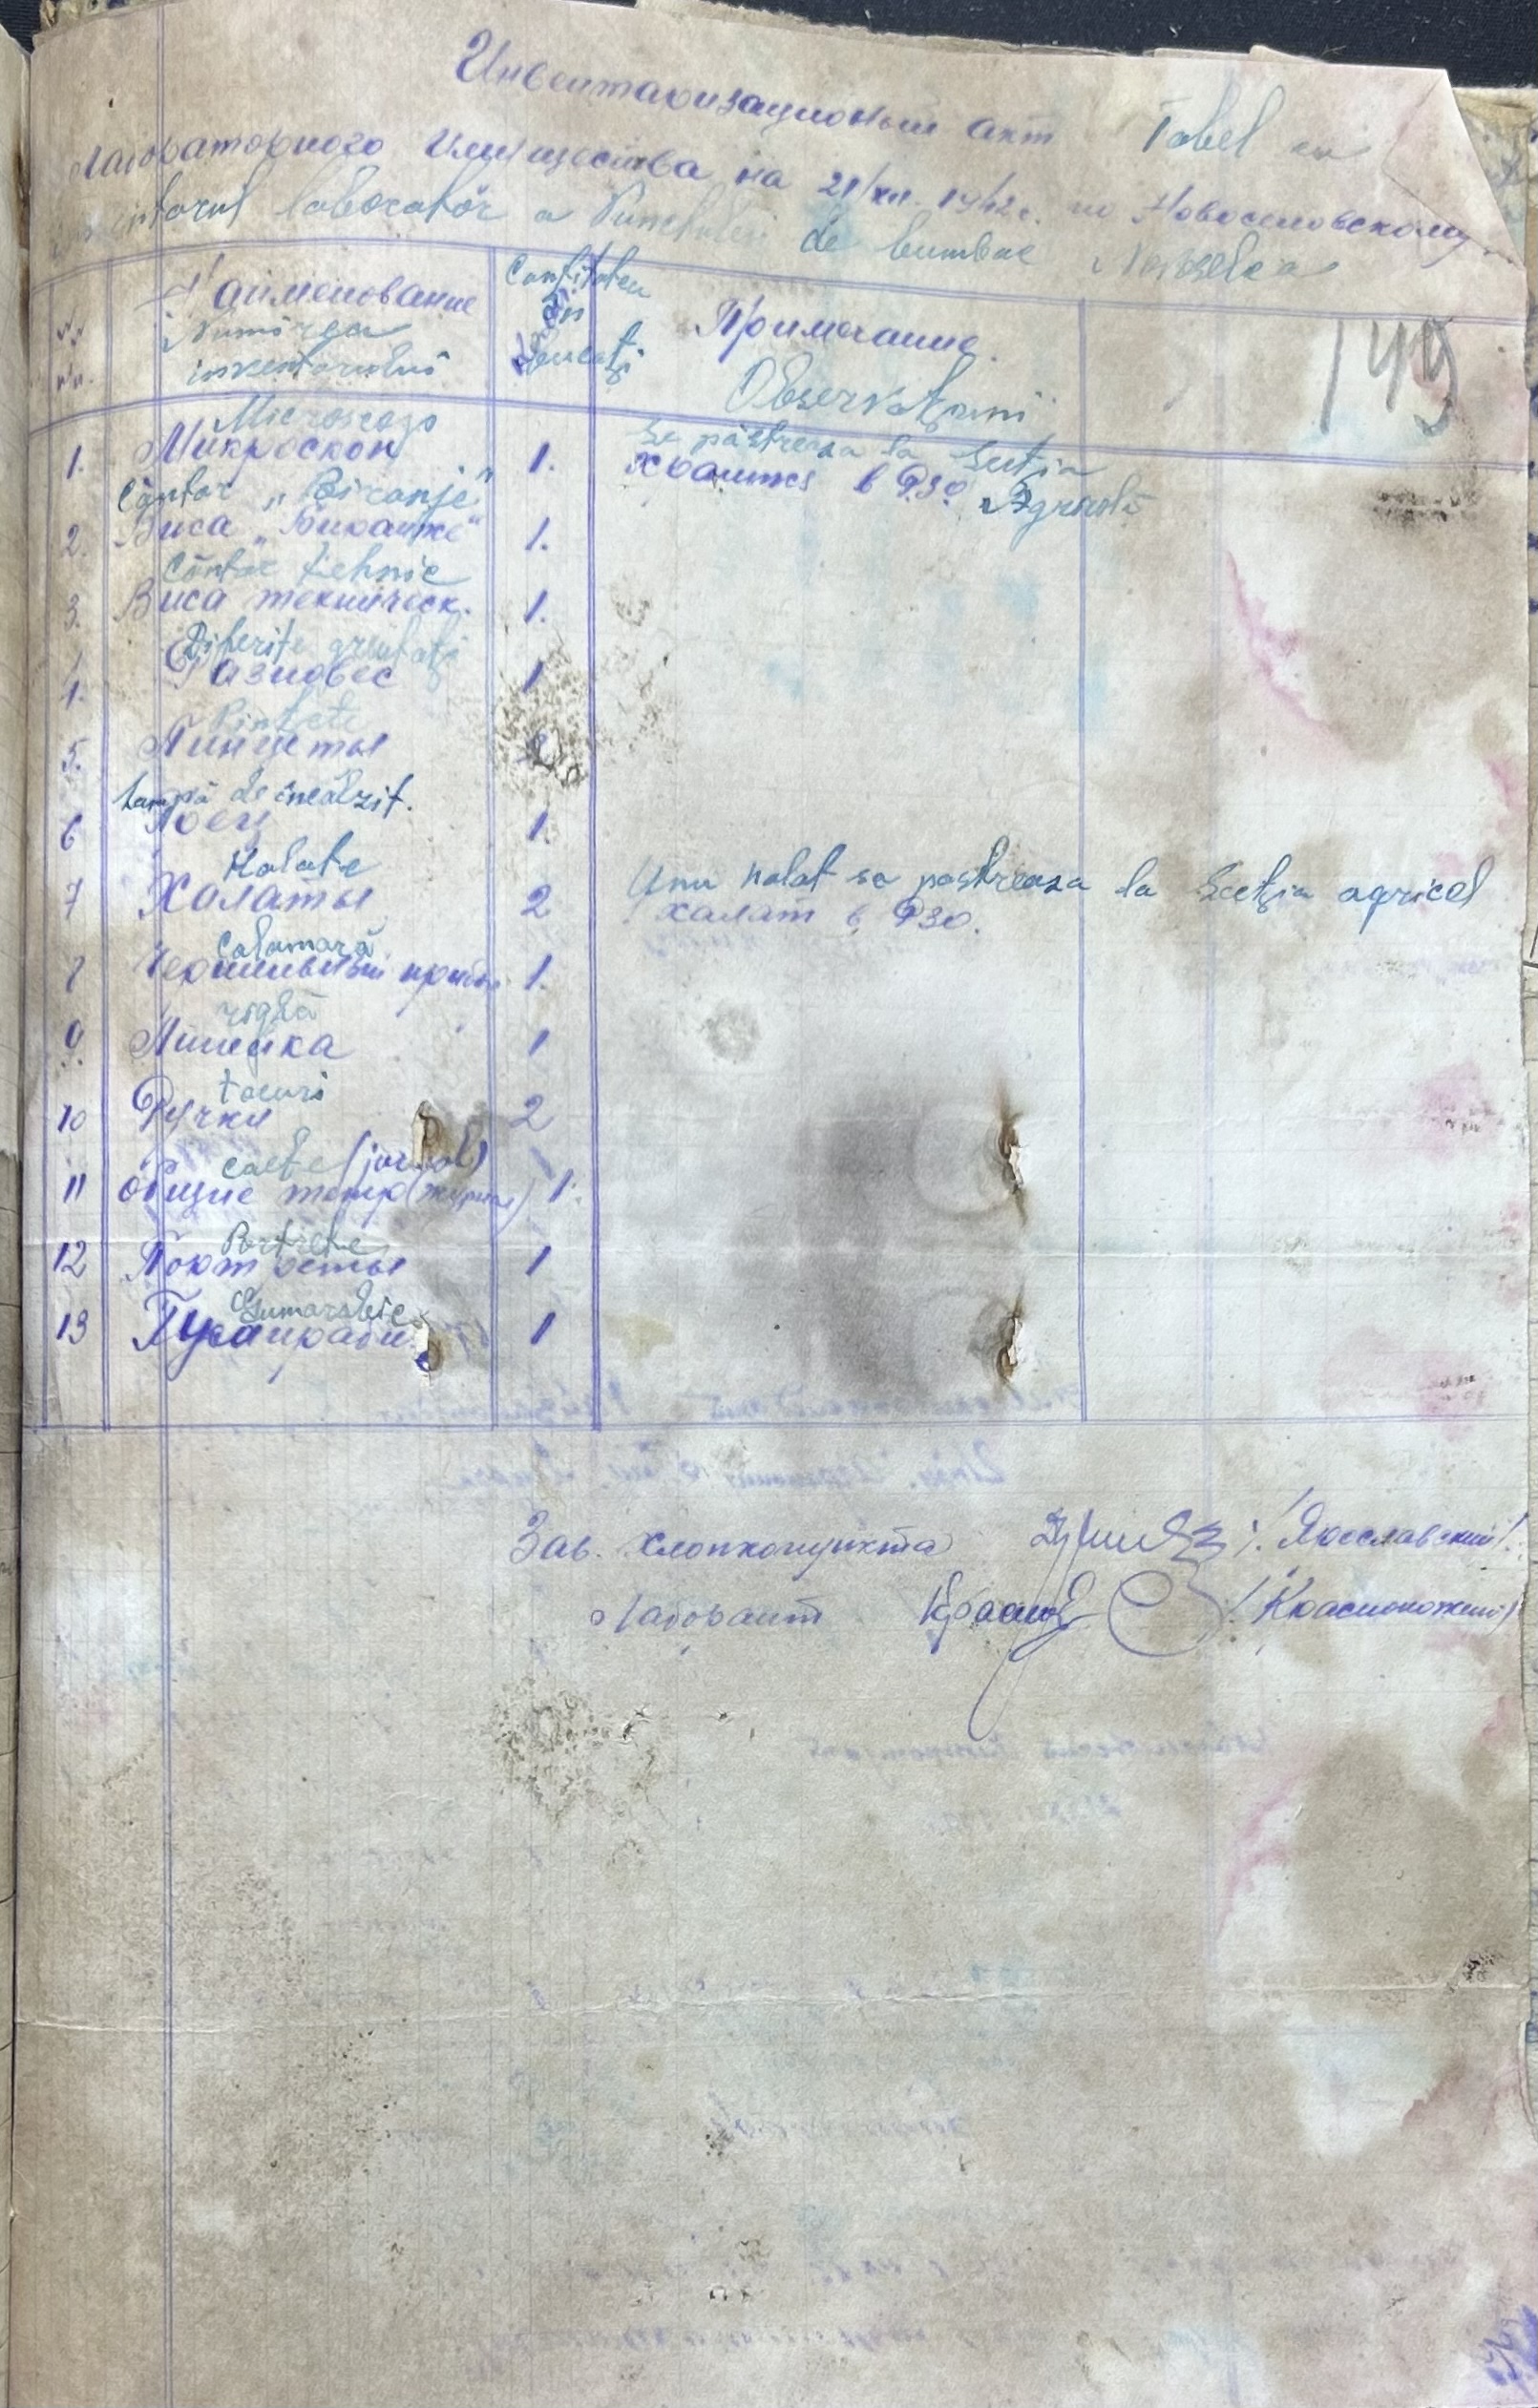 Инвентаризационый акт Tabel cu
Лабораторного Имущества на 21/XII. 1942 г. по Новоселовскому
inventarul laborator a Punctului de bumbac Novoselca
Наименование
Numirea
inventarului
Cantitatea
în
bucăți
Примечание.
Observațiuni
149
Microscop
1. Микроскоп 1.
Se păstreaza la Secția
Хранится в РЗО. Agricolă
Cântar „Biranje"
2. Виса „Биранже" 1.
Cântar tehnic
3. Виса техническ. 1.
Diferite greutăți
4. Разновес 1
Pințete
5. Пинцеты
Lampă de încălzit.
6 1.
Halate
7 Халаты 2
Unu halat se pastreaza la Secția agricol
1 халат в РЗО.
Calamară
8 Чернильный прибор 1.
riglă
9. Линейка 1
tocuri
10 Ручки 2
caete (jurnal)
11 Общие тетр (журнал) 1.
Portrete
12 Портреты 1
Gumarabic
13 1
Зав. Хлопкопункта /Ярославский/.
Лаборант /Красноножкий/